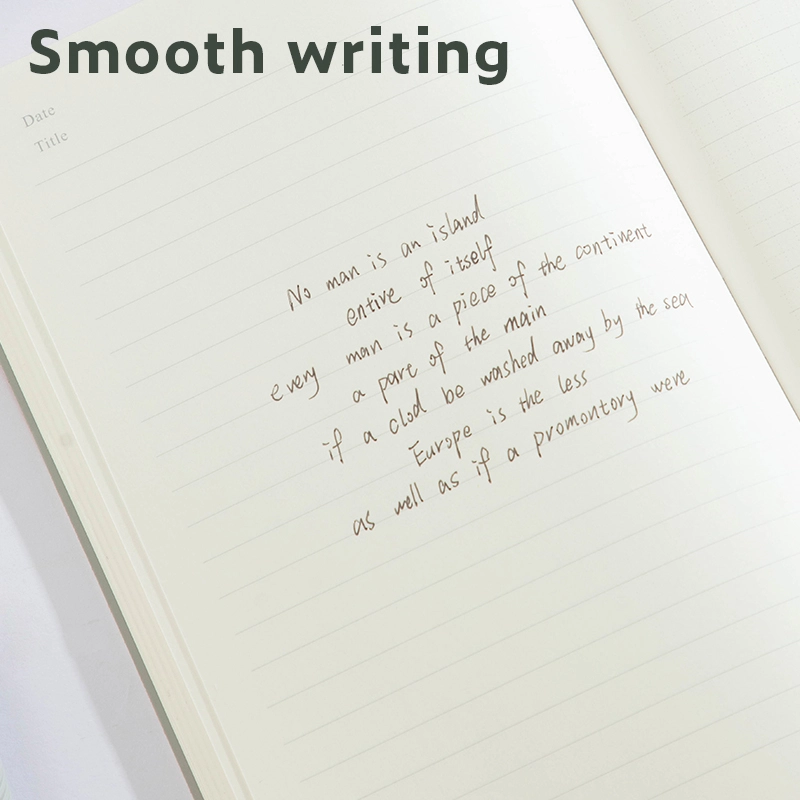 Smooth writing
Date
Title
No man is an island
entive of itself
every man is a piece of the continent
a part of the main
if a clod be washed away by the sea
Europe is the less
as well as if a promontory were